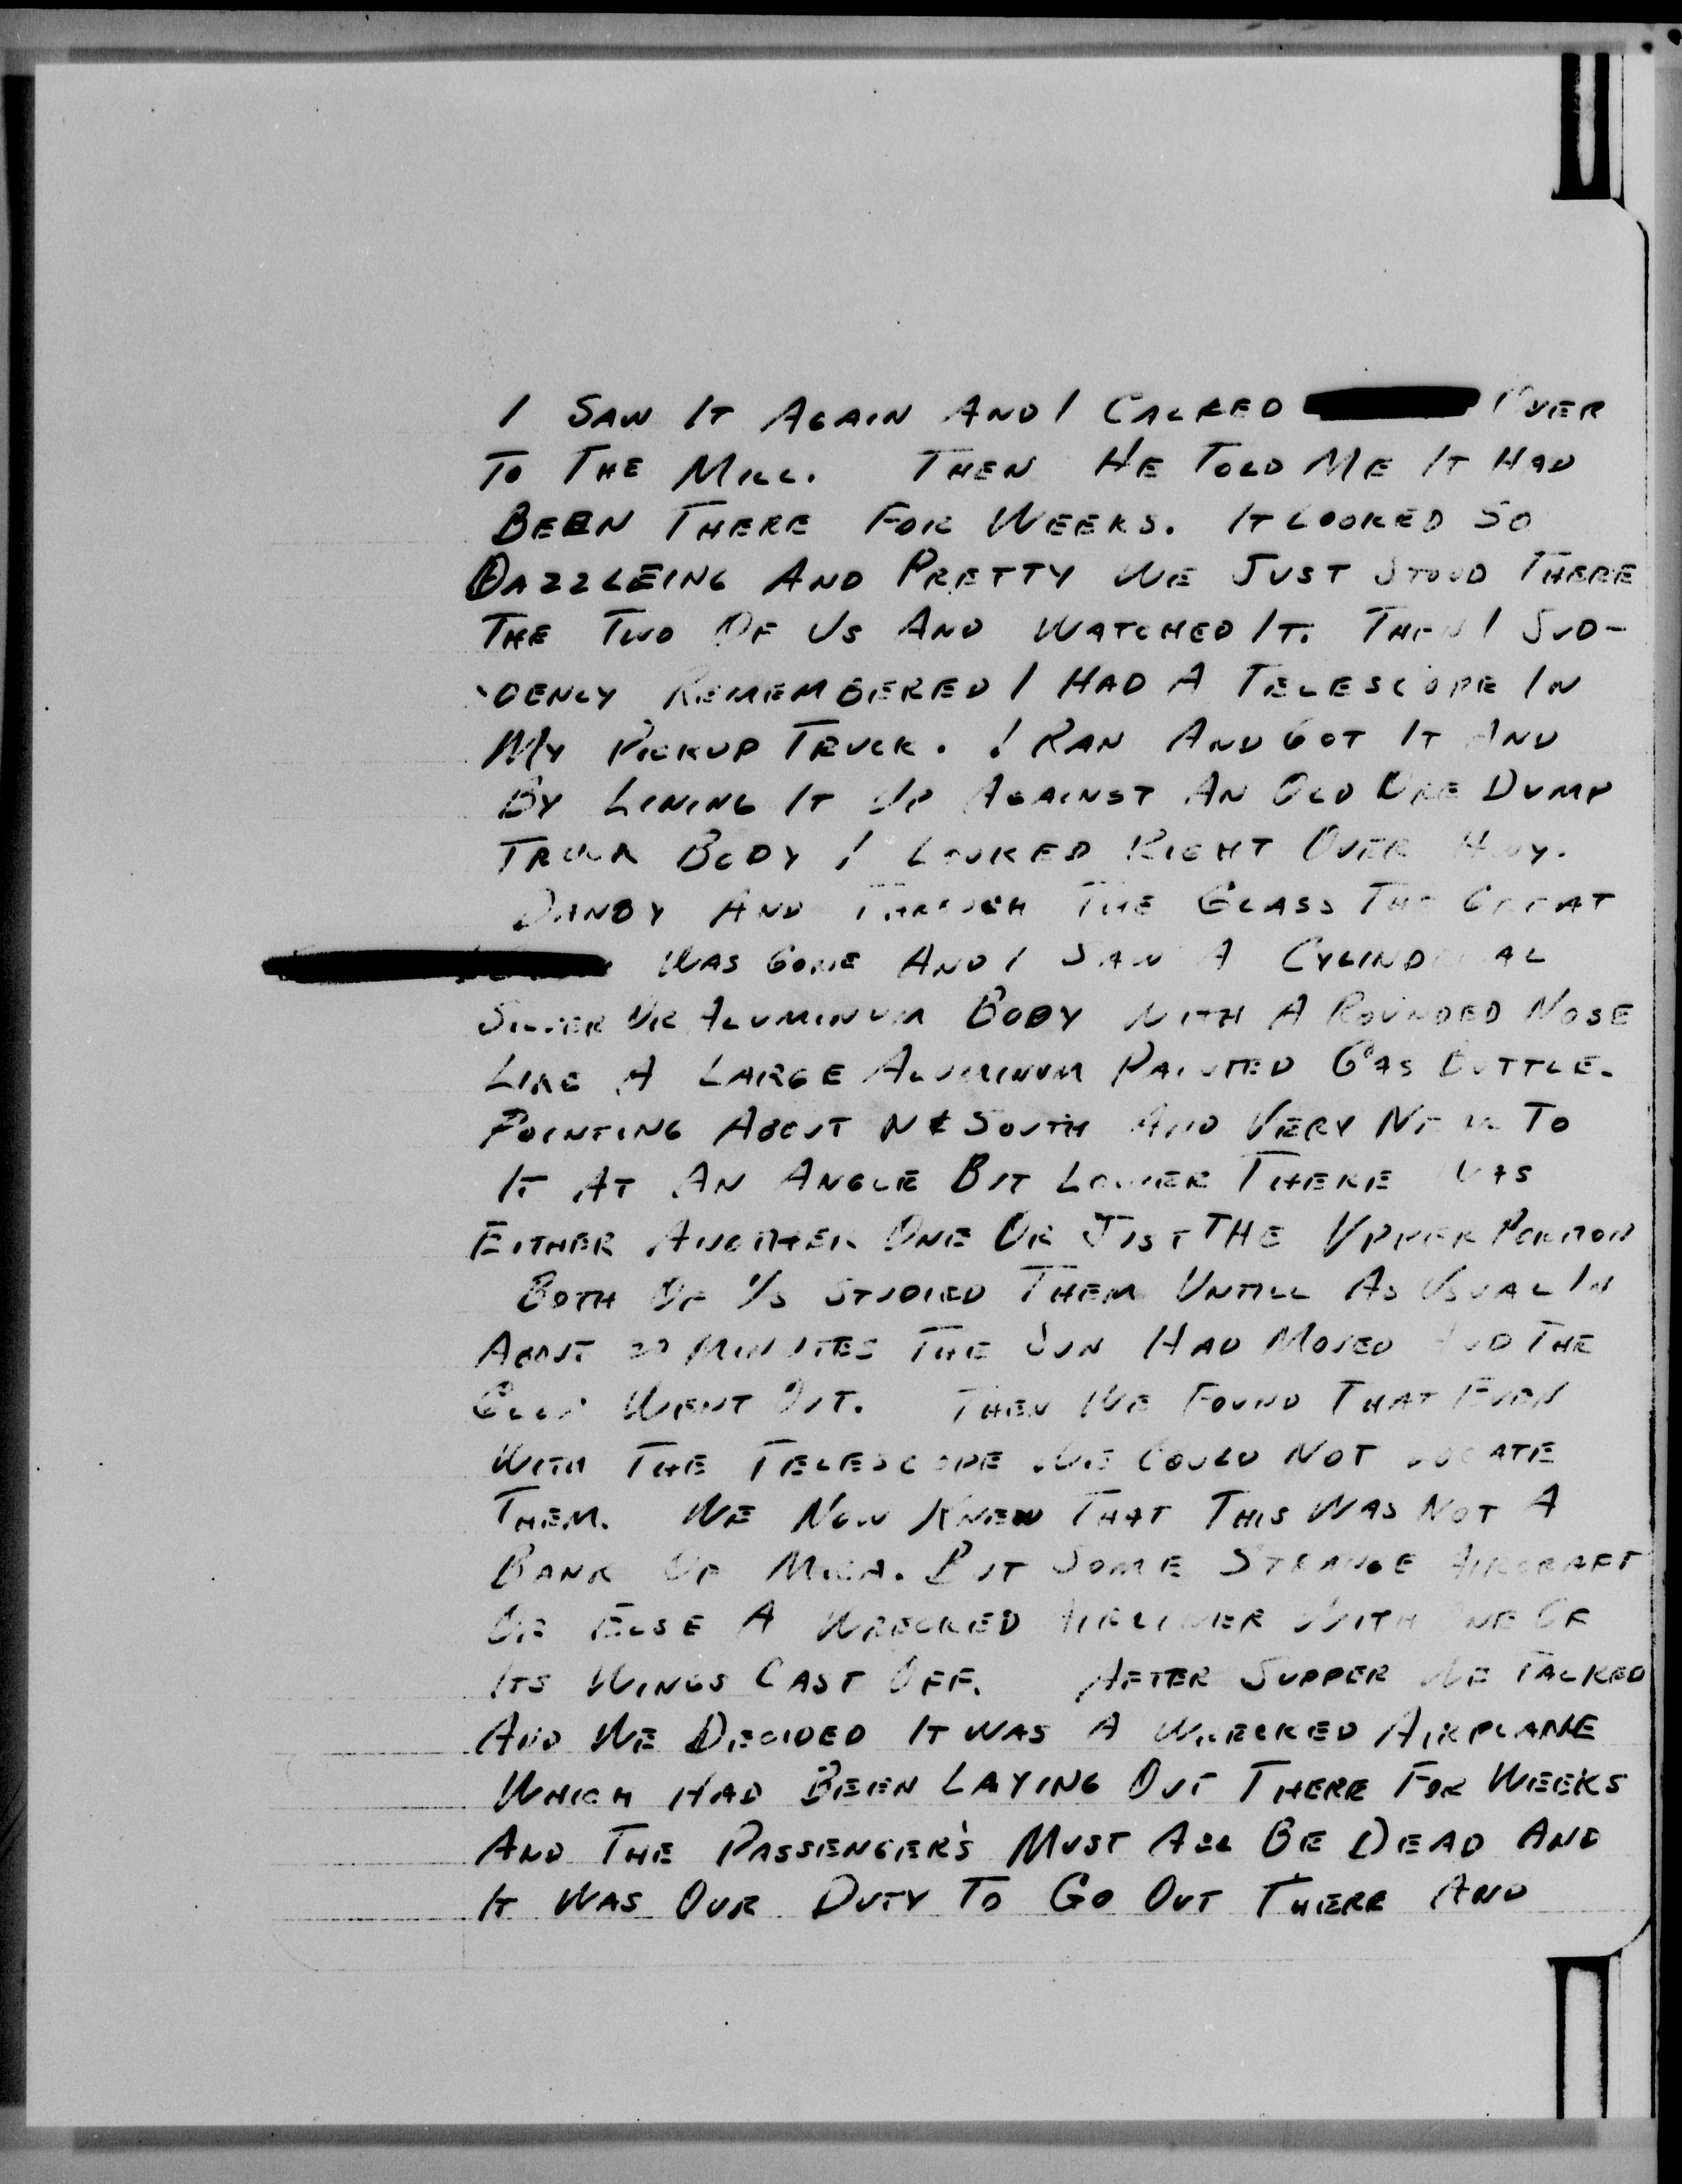 I SAW IT AGAIN AND I CALLED OVER
TO THE MILL. THEN HE TOLD ME IT HAD
BEEN THERE FOR WEEKS. IT LOOKED SO
DAZZLEING AND PRETTY WE JUST STOOD THERE
THE TWO OF US AND WATCHED IT. THEN I SUD-
DENLY REMEMBERED I HAD A TELESCOPE IN
MY PICKUP TRUCK. I RAN AND GOT IT AND
BY LINING IT UP AGAINST AN OLD ORE DUMP
TRUCK BODY I LOOKED RIGHT OVER
DANBY AND THROUGH THE GLASS THE GREAT
WAS GONE AND I SAW A CYLINDRICAL
SILVER OR ALUMINUM BODY WITH A ROUNDED NOSE
LIKE A LARGE ALUMINUM PAINTED GAS BOTTLE.
POINTING ABOUT N & SOUTH AND VERY NEAR TO
IT AT AN ANGLE BUT LOWER THERE WAS
EITHER ANOTHER ONE OR JUST THE UPPER PORTION
BOTH OF US STUDIED THEM UNTILL AS USUAL IN
ABOUT 20 MINUTES THE SUN HAD MOVED AND THE
WENT OUT. THEN WE FOUND THAT EVEN
WITH THE TELESCOPE WE COULD NOT LOCATE
THEM. WE NOW KNEW THAT THIS WAS NOT A
BANK OF MICA. BUT SOME STRANGE AIRCRAFT
OR ELSE A WRECKED AIRLINER WITH ONE OF
ITS WINGS CAST OFF. AFTER SUPPER WE TALKED
AND WE DECIDED IT WAS A WRECKED AIRPLANE
WHICH HAD BEEN LAYING OUT THERE FOR WEEKS
AND THE PASSENGER'S MUST ALL BE DEAD AND
IT WAS OUR DUTY TO GO OUT THERE AND